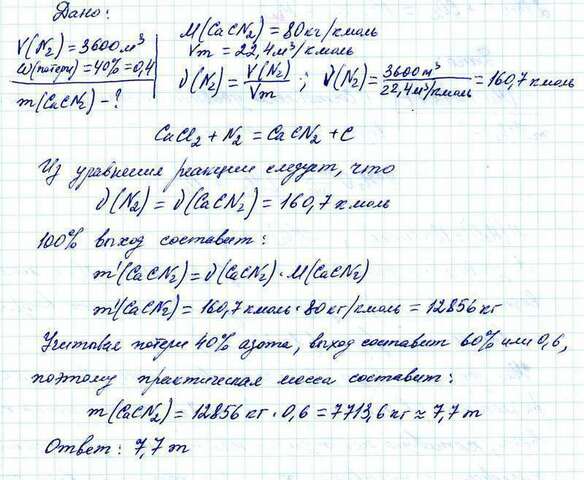 Дано:
V(N₂) = 3600 м³
ω(потери) = 40% = 0,4
m(CaCN₂) - ?
M(CaCN₂) = 80 кг/кмоль
Vm = 22,4 м³/кмоль
ν(N₂) = V(N₂)/Vm ; ν(N₂) = 3600 м³/22,4 м³/кмоль = 160,7 кмоль
CaCl₂ + N₂ = CaCN₂ + C
Из уравнения реакции следует, что
ν(N₂) = ν(CaCN₂) = 160,7 кмоль
100% выход составит:
m'(CaCN₂) = ν(CaCN₂) · M(CaCN₂)
m'(CaCN₂) = 160,7 кмоль · 80 кг/кмоль = 12856 кг
Учитывая потери 40% азота, выход составит 60% или 0,6,
поэтому практическая масса составит:
m(CaCN₂) = 12856 кг · 0,6 = 7713,6 кг ≈ 7,7 т
Ответ: 7,7 т